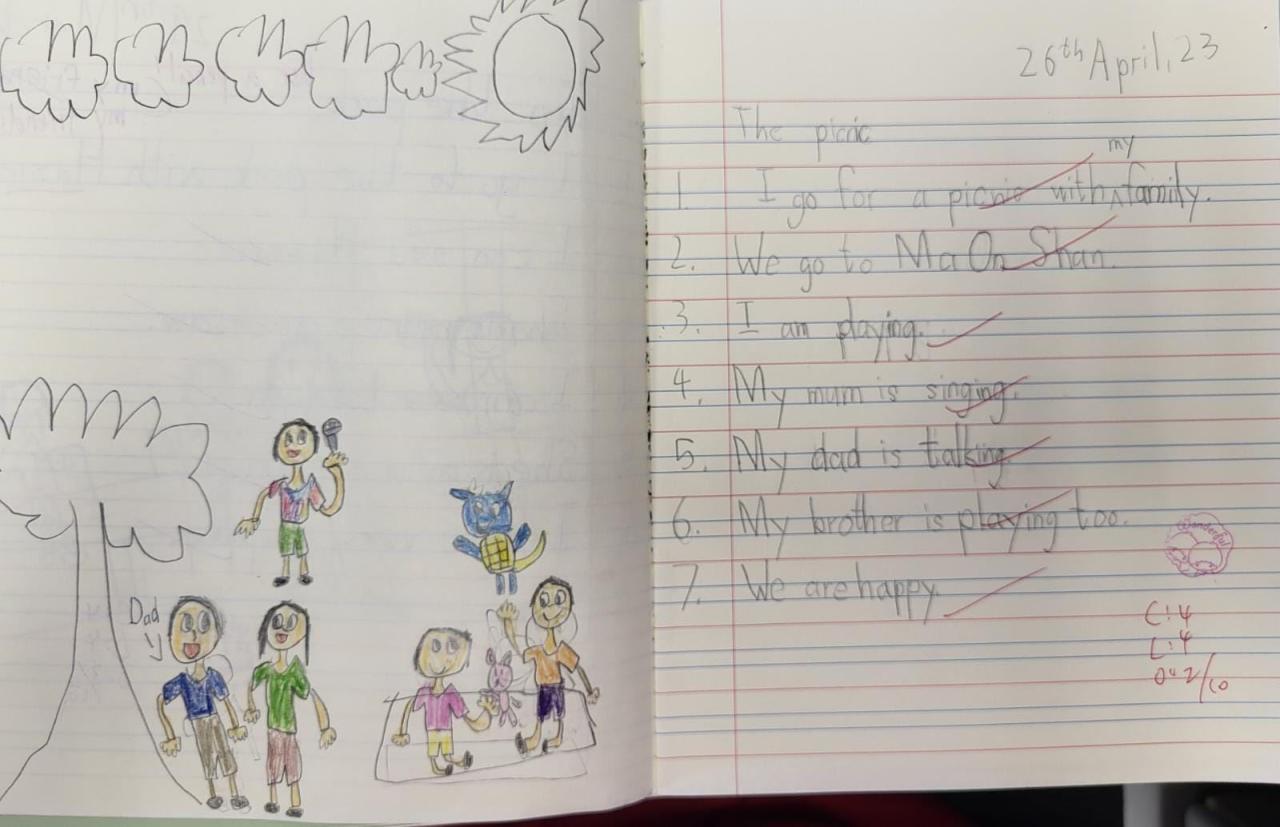 Dad
26th April, 23
The picnic
my
1. I go for a picnic with ^ family.
2. We go to Ma On Shan.
3. I am playing.
4. My mum is singing.
5. My dad is talking.
6. My brother is playing too.
7. We are happy.
Wonderful
C: 4
L: 4
O: 2/10